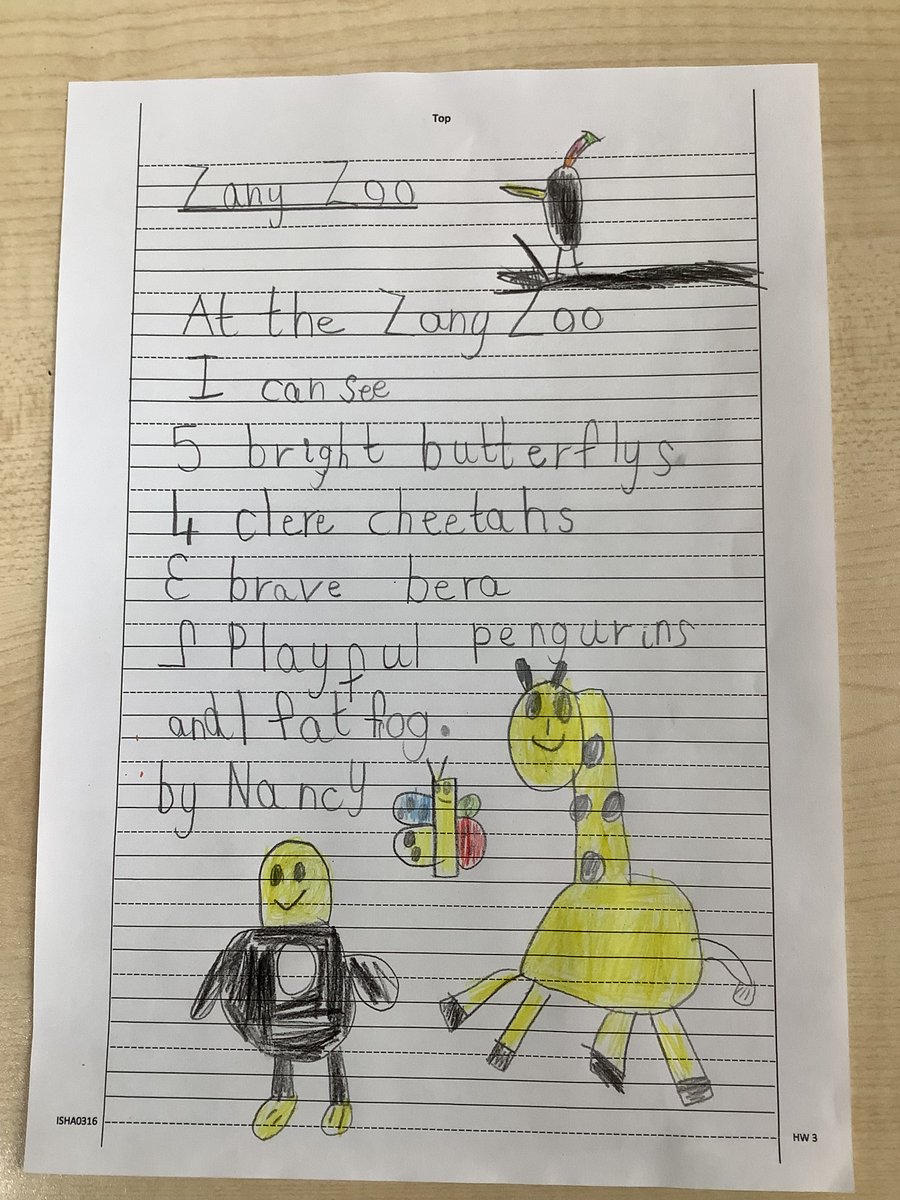 Top
Zany Zoo
At the Zany Zoo
I can see
5 bright butterflys
4 clere cheetahs
3 brave bera
2 Playful pengurins
and 1 fat fog.
by Nancy
ISHA0316
HW 3